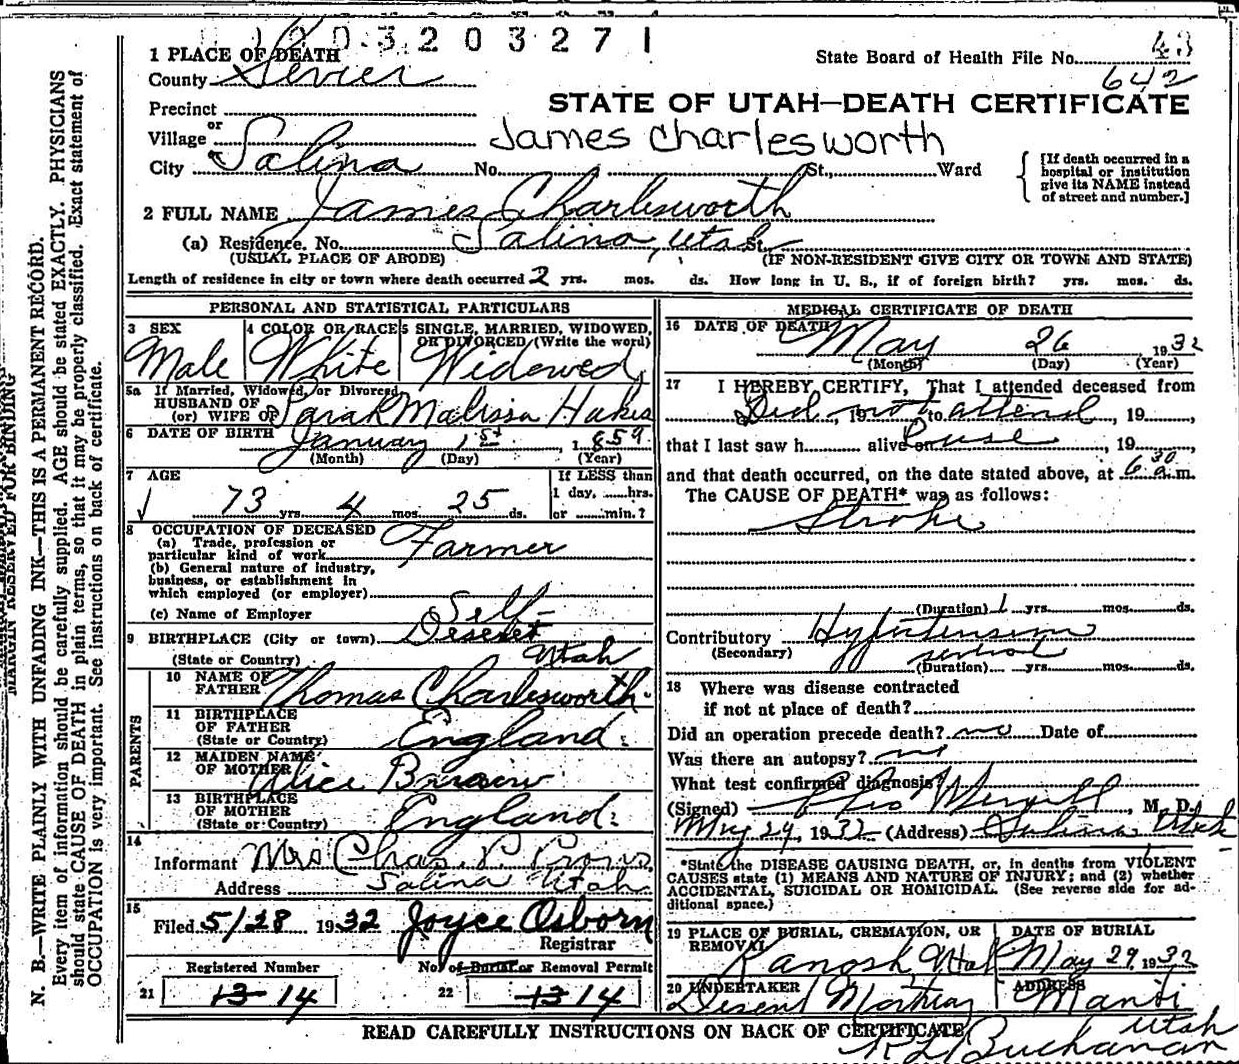 0 0 0 3 2 0 3 2 7 1
1 PLACE OF DEATH
State Board of Health File No. 43
County Sevier
642
STATE OF UTAH—DEATH CERTIFICATE
Precinct
or
Village
James Charlesworth
City Salina No. St., Ward
[If death occurred in a
hospital or institution
give its NAME instead
of street and number.]
2 FULL NAME James Charlesworth
(a) Residence. No. Salina, Utah St.
(USUAL PLACE OF ABODE) (IF NON-RESIDENT GIVE CITY OR TOWN AND STATE)
Length of residence in city or town where death occurred 2 yrs. mos. ds. How long in U. S., if of foreign birth? yrs. mos. ds.
PERSONAL AND STATISTICAL PARTICULARS
3 SEX
Male
4 COLOR OR RACE
White
5 SINGLE, MARRIED, WIDOWED,
OR DIVORCED (Write the word)
Widowed
5a If Married, Widowed, or Divorced
HUSBAND OF
(or) WIFE OF Sarah Malissa Hakes
6 DATE OF BIRTH January 1st 1859
(Month) (Day) (Year)
7 AGE
73 yrs. 4 mos. 25 ds.
If LESS than
1 day, hrs.
or min.?
8 OCCUPATION OF DECEASED
(a) Trade, profession or
particular kind of work Farmer
(b) General nature of industry,
business, or establishment in
which employed (or employer)
(c) Name of Employer Self
9 BIRTHPLACE (City or town) Deseret
(State or Country) Utah
PARENTS
10 NAME OF
FATHER Thomas Charlesworth
11 BIRTHPLACE
OF FATHER
(State or Country) England
12 MAIDEN NAME
OF MOTHER Alice
13 BIRTHPLACE
OF MOTHER
(State or Country) England
14
Informant Mrs Chas. P. Prows
Address Salina Utah
15
Filed 5/28 1932 Joyce Osborn
Registrar
Registered Number
21 13 14
No. of Burial or Removal Permit
22 13 14
MEDICAL CERTIFICATE OF DEATH
16 DATE OF DEATH
May 26 1932
(Month) (Day) (Year)
17 I HEREBY CERTIFY, That I attended deceased from
Did not attend, 19 to , 19
that I last saw h alive on , 19
and that death occurred, on the date stated above, at 6 30 a.m.
The CAUSE OF DEATH* was as follows:
Stroke
(Duration) 1 yrs. mos. ds.
Contributory Hypertension
(Secondary) several
(Duration) yrs. mos. ds.
18 Where was disease contracted
if not at place of death?
Did an operation precede death? no Date of
Was there an autopsy? no
What test confirmed diagnosis?
(Signed) M. D.
May 29, 1932 (Address) Salina Utah
*State the DISEASE CAUSING DEATH, or, in deaths from VIOLENT
CAUSES state (1) MEANS AND NATURE OF INJURY; and (2) whether
ACCIDENTAL, SUICIDAL OR HOMICIDAL. (See reverse side for ad-
ditional space.)
19 PLACE OF BURIAL, CREMATION, OR
REMOVAL
Kanosh Utah
DATE OF BURIAL
May 29, 1932
20 UNDERTAKER
Deseret Mortuary
ADDRESS
Manti
Utah
R L Buchanan
READ CAREFULLY INSTRUCTIONS ON BACK OF CERTIFICATE
MARGIN RESERVED FOR BINDING
N. B.—WRITE PLAINLY WITH UNFADING INK—THIS IS A PERMANENT RECORD.
Every item of information should be carefully supplied. AGE should be stated EXACTLY. PHYSICIANS
should state CAUSE OF DEATH in plain terms, so that it may be properly classified. Exact statement of
OCCUPATION is very important. See instructions on back of certificate.